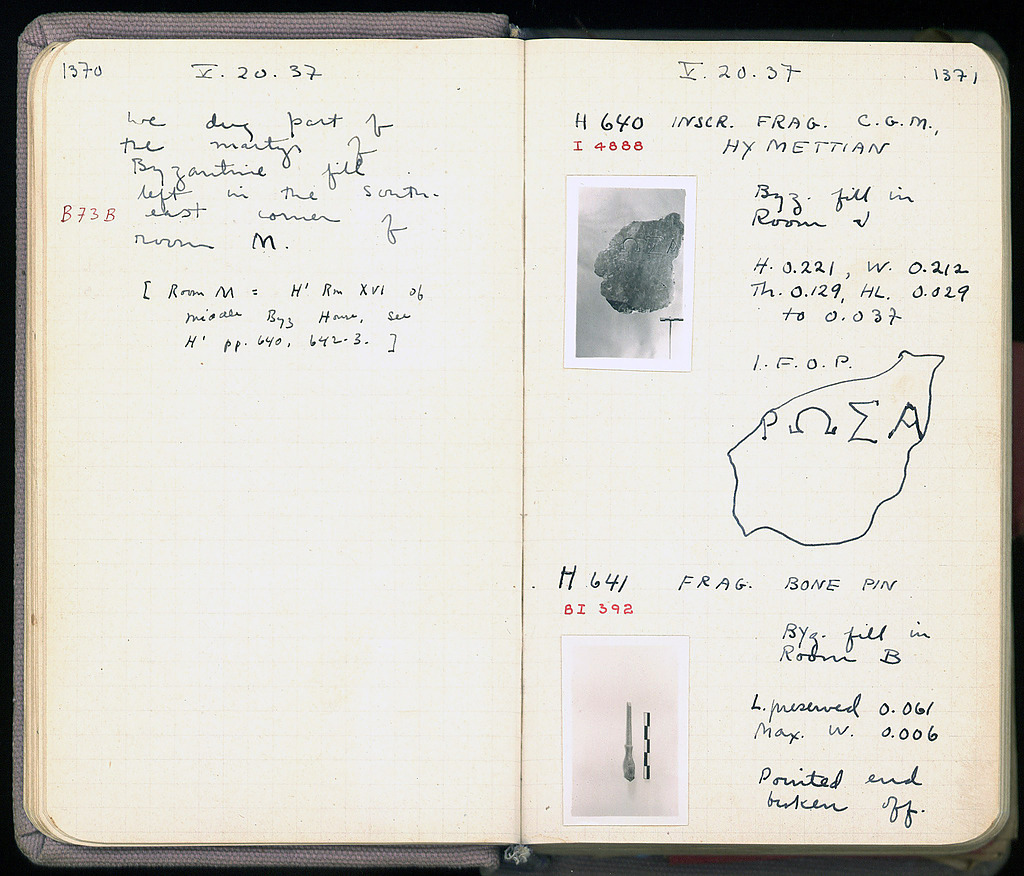 1370 V. 20. 37
We dug part of
the martys of
Byzantine fill
left in the South-
B73B east corner of
room M.
[ Room M = H' Rm XVI of
middle Byz House, see
H' pp. 640, 642-3. ]
V. 20. 37 1371
H 640 INSCR. FRAG. C.G.M.,
I 4888 HYMETTIAN
Byz. fill in
Room
H. 0.221, W. 0.212
Th. 0.129, HL. 0.029
to 0.037
I. F. O. P.
ΡΩΣΑ
H 641 FRAG. BONE PIN
BI 392
Byz. fill in
Room B
L. preserved 0.061
Max. W. 0.006
Pointed end
broken off.